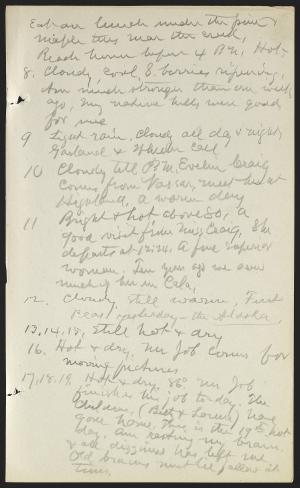 Eat our lunch under the pine &
maple this near the creek,
Reach home before 4 P.M. Hot.
8. Cloudy, cool, S. berries ripening,
Am much stronger than one week
ago, My native hills were good
for me
9 Light rain, cloudy all day & night,
Garland & Wheeler call
10 Cloudy till P.M. Evelin Craig
comes from Vassar, meet her at
Highland, a warm day
11 Bright & hot above 80, a
good visit from Miss Craig, She
departs at 12:24. A fine superior
woman. Ten years ago we saw
much of her in Cala,
12. Cloudy, still warm, First
Peas yesterday – the Alaska,
13, 14, 15, Still hot & dry
16. Hot & dry, Mr Job comes for
moving pictures
17, 18, 19, Hot & dry, 86° Mr Job
finishes his job to-day. The
Children, ( & ) have
gone home. This is the 19th hot
day, Am resting my brain,
& all dizziness has left me
Old brains must lie fallow at
times,